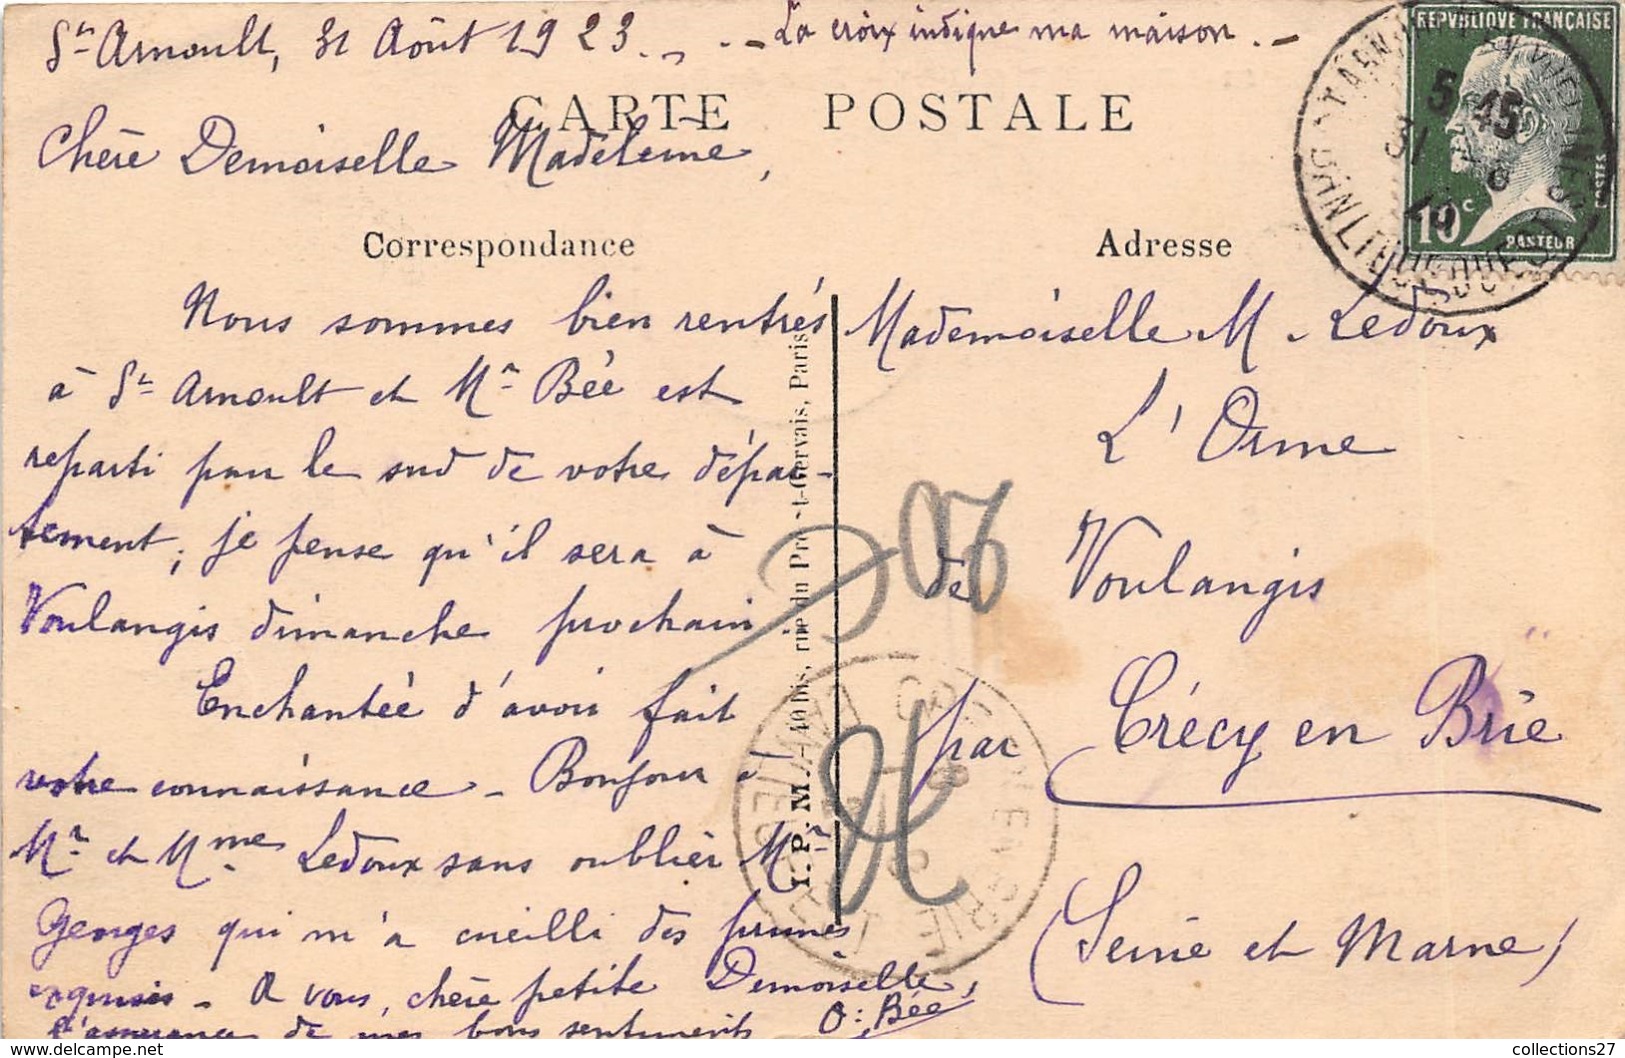 St Arnoult, 31 Août 1923. - La croix indique ma maison. -
CARTE POSTALE
Chère Demoiselle Madeleine,
Correspondance
Nous sommes bien rentrés
à St Arnoult et Mr Bée est
reparti pour le sud de votre dépar-
tement, je pense qu'il sera à
Voulangis dimanche prochain
Enchantée d'avoir fait
votre connaissance - Bonjour à
Mr et Mme Ledoux sans oublier Mr
Georges qui m'a cueilli des prunes
exquises - A vous, chère petite Demoiselle,
l'assurance de mes bons sentiments
O. Bée
I. P. M. - 40 bis, rue du Pré-St-Gervais, Paris
Adresse
Mademoiselle M. Ledoux
L'Orme
de Voulangis
par Crécy en Brie
(Seine et Marne)
REPVBLIQVE FRANÇAISE
POSTES
10c
PASTEUR
5 45
31
collections27